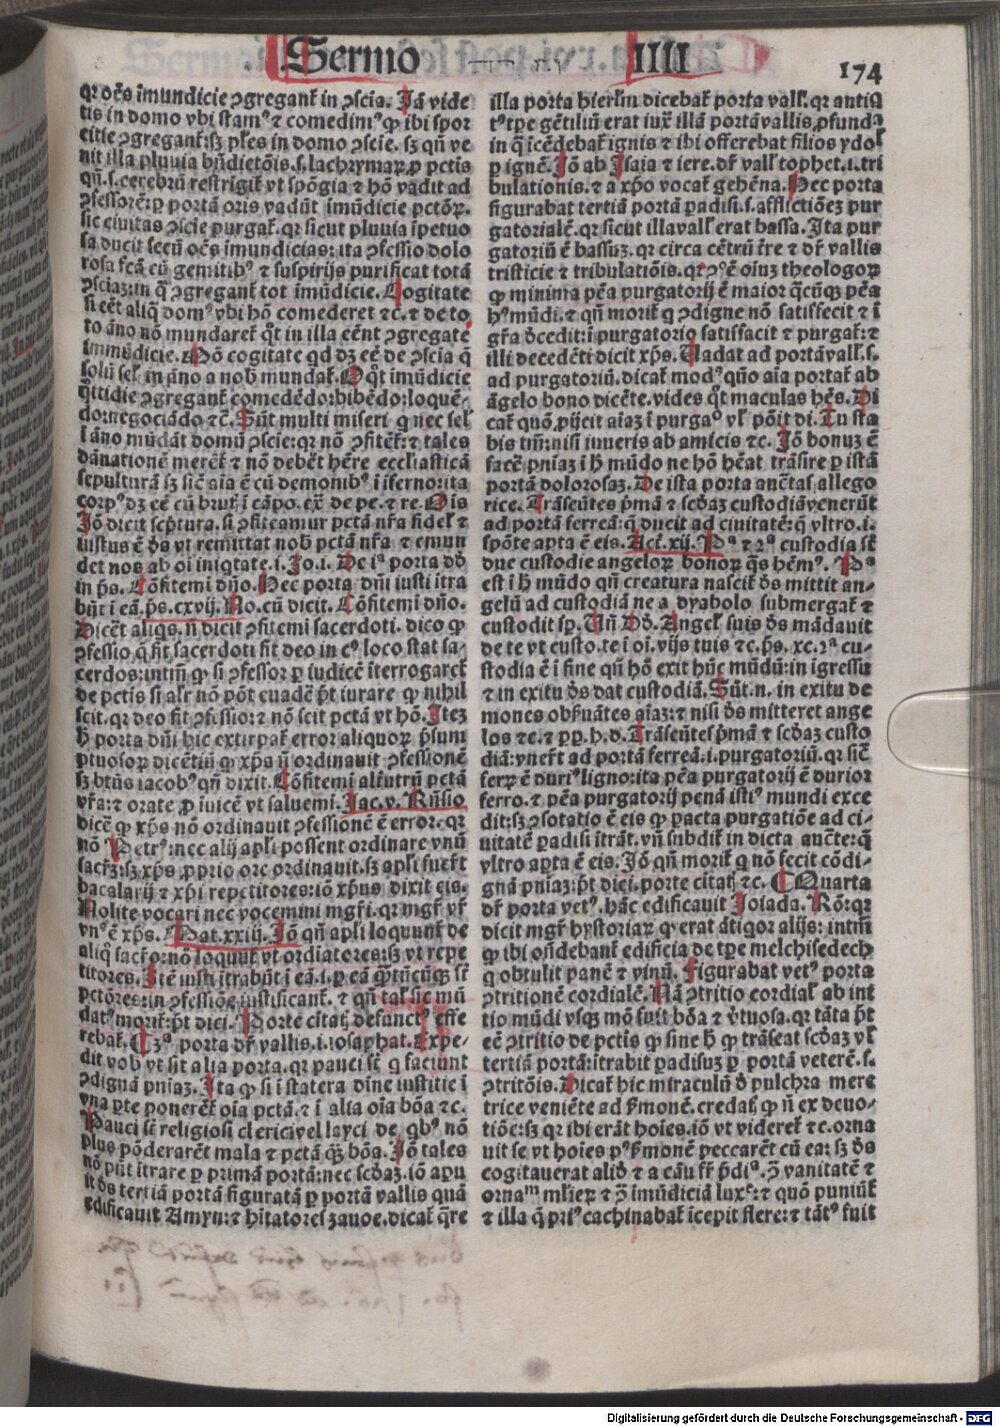 Sermo IIII
174
qr oēs īmundicie ꝯgregant᷑ in ꝯscīa. Jā vide
tis in domo vbi stamꝰ ⁊ comedimꝰ ꝙ ibi spor
citie ꝯgregant᷑: sꝫ ples in domo ꝯscīe. sꝫ qn̄ ve
nit illa pluuia bn̄dictōis. s. lachrymaꝝ ꝓ pctīs
qn̄. s. cerebrū restrigit᷑ vt spōgia ⁊ hō vadit ad
ꝯfessorē: ꝑ portā oris vadūt imūdicie pctōꝝ.
sic ciuitas ꝯscīe purgat᷑. qr sicut pluuia īpetuo
sa ducit secū oēs imundicias: ita ꝯfessio dolo
rosa fcā cū gemitibꝰ ⁊ suspirijs purificat totā
ꝯsciaꝫ: in q̄ ꝯgregant᷑ tot imūdicie. Cogitate
si eēt aliq̄ domꝰ vbi hō comederet ⁊c. ⁊ de to
to āno nō mundaret᷑ q̄t in illa eēnt ꝯgregate
immūdicie. Mō cogitate qd dꝫ eē de ꝯscīa q̄
solū sel᷑ in āno a nob mundat᷑. O q̄t imūdicie
q̄ttidie ꝯgregant᷑ comedēdo: bibēdo: loquē-
do: negociādo ⁊c. Sūt multi miseri q nec sel᷑
ī āno mūdāt domū ꝯscīe: qr nō ꝯfitēt᷑: ⁊ tales
dānationē merēt᷑ ⁊ nō debēt hēre ecclīasticā
sepulturā sꝫ sic̄ aīa ē cū demonibꝰ ī īferno: ita
corpꝰ dꝫ eē cū brut᷑ ī cāpo. ex̄ de pe. ⁊ re. Ois
Jō dicit scptura. si ꝯfiteamur pctā nr̄a fidel᷑ ⁊
iustus ē d̄s vt remittat nob pctā nr̄a ⁊ emun
det nos ab oi iniqtate. i. Jo. i. De īᵃ porta dō
in p̄s. Cōfitemi dn̄o. Hec porta dn̄i iusti ītra
būt ī eā. p̄s. cxvij. No. cū dicit. Cōfitemi dn̄o.
Dicēt aliqs. n̄ dicit ꝯfitemi sacerdoti. dico ꝙ
ꝯfessio q̄ fit sacerdoti fit deo in cꝰ loco stat sa-
cerdos: intm̄ ꝙ si ꝯfessor ꝑ iudicē īterroget᷑
de pctīs si alr̄ nō pōt euadē pt iurare ꝙ nihil
scit. qr deo fit ꝯfessio: ⁊ nō scit pctā vt hō. Iteꝫ
h̄ porta dn̄i hic extirpat᷑ error aliquoꝝ p̄sum
ptuosoꝝ dicētiū ꝙ xp̄s n̄ ordinauit ꝯfessionē
sꝫ bt̄us iacobꝰ qn̄ dixit. Cōfitemi alēutrū pctā
vr̄a: ⁊ orate ꝓ īuicē vt saluemi. Jac. v. Rn̄sio
dicē ꝙ xp̄s nō ordinauit ꝯfessionē ē error. qr
nō Petrꝰ: nec alij apl̄i possent ordinare vnū
sacr̄ꝫ: sꝫ xp̄s ꝓprio ore ordinauit. sꝫ apl̄i fuert᷑
bacalarij ⁊ xp̄i repetitores: iō xp̄us dixit eis.
Nolite vocari nec vocemini mgr̄i. qr mgr̄ vr̄
vnꝰ ē xp̄s. Mat. xxiij. Jō qn̄ apl̄i loquunt᷑ de
aliq̄ sacr̄o: nō loquut᷑ vt ordiatores: sꝫ vt repe
titores. Itē iusti ītrabūt ī eā. i. ꝑ eā q̄ntūcūqꝫ st᷑
pctōres: in ꝯfessiōe iustificant᷑. ⁊ qn̄ tal᷑ sic mū
datꝰ morit᷑: pt dici. Porte citatꝭ defunctꝰ effe
rebat᷑. ¶ 3ᵃ porta dr᷑ vallis. i. iosaphat. Expe-
dit vob vt sit alia porta. qr pauci st᷑ q faciunt
ꝯdignā pniaꝫ. Ita ꝙ si ī statera dīne iustitie ī
vna ꝑte ponerēt᷑ oīa pctā. ⁊ ī alia oīa bōa ⁊c.
Pauci st᷑ religiosi clericivel layci de qbꝰ nō
plus pōderarēt mala ⁊ pctā qꝫ bōa. Jō tales
nō pūt ītrare ꝑ primā portā: nec scdaꝫ. iō apu
it d̄s tertiā portā figuratā ꝑ portā vallis quā
edificauit Amyn: ⁊ hītatores zauoe. dicat᷑ q̄re
illa porta hierlm̄ dicebat᷑ porta vall᷑. qr antiq̄
tꝰ tꝑe gētiliū erat iux̄ illā portā vallis, ꝓfunda
in q̄ īcēdebat᷑ ignis ⁊ ibi offerebat filios ydol᷑
ꝑ ignē. Jō ab Isaia ⁊ iere. dr᷑ vall᷑ tophet. i. tri
bulationis. ⁊ a xp̄o vocat᷑ gehēna. Hec porta
figurabat tertiā portā ꝑadisi. s. afflictiōeꝫ pur
gatorialē. qr sicut illavall᷑ erat bassa. Ista pur
gatoriū ē bassuꝫ. qr circa cētrū tr̄e ⁊ dr᷑ vallis
tristicie ⁊ tribulatiōis. qr ꝯꝰ ē oīuꝫ theologoꝝ
ꝙ minima pēa purgatorij ē maior q̄cūqꝫ pēa
hꝰ mūdi. ⁊ qn̄ morit᷑ q ꝯdigne nō satisfecit ⁊ ī
gr̄a d̄cedit: ī purgatorio satisfacit ⁊ purgat᷑: ⁊
illi decedēti dicit xp̄s. Vadat ad portāvall᷑. s.
ad purgatoriū. dicat᷑ modꝰ qn̄o aīa portat᷑ ab
āgelo bono dicēte. vides q̄t maculas hēs. Di
cat᷑ quō ꝓijcit aīaꝫ ī purgaᵒ vl᷑ pōit di. Tu sta
bis tm̄: nisi iuueris ab amicis ⁊c. Jō bonuꝫ ē
facē pniaꝫ ī h̄ mūdo ne hō hēat trāsire ꝑ istā
portā dolorosaꝫ. De ista porta anc̄tas allego
rice. Trāseūtes p̄mā ⁊ scdaꝫ custodiāvenerūt
ad portā ferreā: q̄ ducit ad ciuitatē: q̄ vltro. i.
spōte apta ē eis. Act. xij. Pᵃ ⁊ 2ᵃ custodia st᷑
due custodie angeloꝝ bonoꝝ q̄s hēmꝰ. Pᵃ
est ī h̄ mūdo qn̄ creatura nascit᷑ d̄s mittit an-
gelū ad custodiā ne a dyabolo submergat᷑ ⁊
custodit sꝑ. Un̄ Dō. Angel᷑ suis d̄s mādauit
de te vt custo. te ī oī. vijs tuis ⁊c. p̄s. xc. 2ᵃ cu-
stodia ē ī fine qn̄ hō exit hūc mūdū: in īgressu
⁊ in exitu d̄s dat custodiā. Sūt. n. in exitu de
mones obẞuātes aīaꝫ: ⁊ nisi d̄s mitteret ange
los ⁊c. ⁊ ꝓp. h. d. Trāseūtes p̄mā ⁊ scdaꝫ custo
diā: vnert᷑ ad portā ferreā. i. purgatoriū. qr sic̄
ferꝝ ē duriꝰ ligno: ita pēa purgatorij ē durior
ferro. ⁊ pēa purgatorij penā istiꝰ mundi exce
dit: sꝫ ꝯsolatio ē eis ꝙ pacta purgatiōe ad ci-
uitatē ꝑadisi ītrāt. vn̄ subdit᷑ in dicta auc̄te: q̄
vltro aꝑta ē eis. Jō qn̄ morit᷑ q nō fecit cōdi-
gnā pniaꝫ: pt dici. porte citatꝭ ⁊c. ¶ Quarta
dr᷑ porta vetꝰ. hāc edificauit Joiada. Rō: qr
dicit mgr᷑ hystoriaꝝ ꝙ erat ātiqor alijs: intm̄
ꝙ ibi on̄debant᷑ edificia de tꝑe melchisedech
q obtulit panē ⁊ vinū. Figurabat vetꝰ porta
ꝯtritionē cordialē. Nā ꝯtritio cordial᷑ ab int᷑
tio mūdi vsqꝫ mō fuit bōa ⁊ v̄tuosa. qr tāta pt
eē ꝯtritio de pctīs ꝙ sine h̄ ꝙ trāseat scdaꝫ vl᷑
tertiā portā: ītrabit ꝑadisuꝫ ꝑ portā veterē. s.
ꝯtritōis. Dicat᷑ hic miraculū d̄ pulchra mere
trice veniēte ad ẞmonē. credatꝭ ꝙ n̄ ex deuo-
tiōe: sꝫ qr ibi erāt hoīes. iō vt videret᷑ ⁊c. orna
uit se vt hoies pꝰ ẞmonē peccarēt cū ea: sꝫ d̄s
cogitauerat aliō ⁊ a cāu fr̄ p̄diᵃ. ꝯ̄ vanitatē ⁊
ornaᵐ mlieꝝ ⁊ ꝯ̄ imūdiciā luxᵉ: ⁊ quō puniūt᷑
⁊ illa q̄ priꝰ cachinabat᷑ īcepit flere: ⁊ tātꝰ fuit
Digitalisierung gefördert durch die Deutsche Forschungsgemeinschaft - DFG